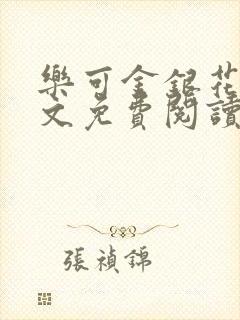 樂可金銀花
文免費閱讀
張禎錦